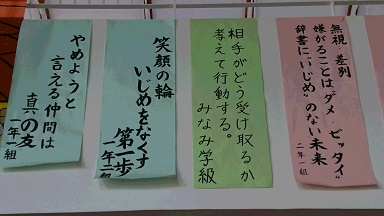 無視 差別
嫌がることはダメ・ゼッタイ
辞書に"いじめ"のない未来
二年一組
相手がどう受け取るか
考えて行動する。
みなみ学級
笑顔の輪
いじめをなくす
第一歩
一年二組
やめようと
言える仲間は
真の友
一年一組